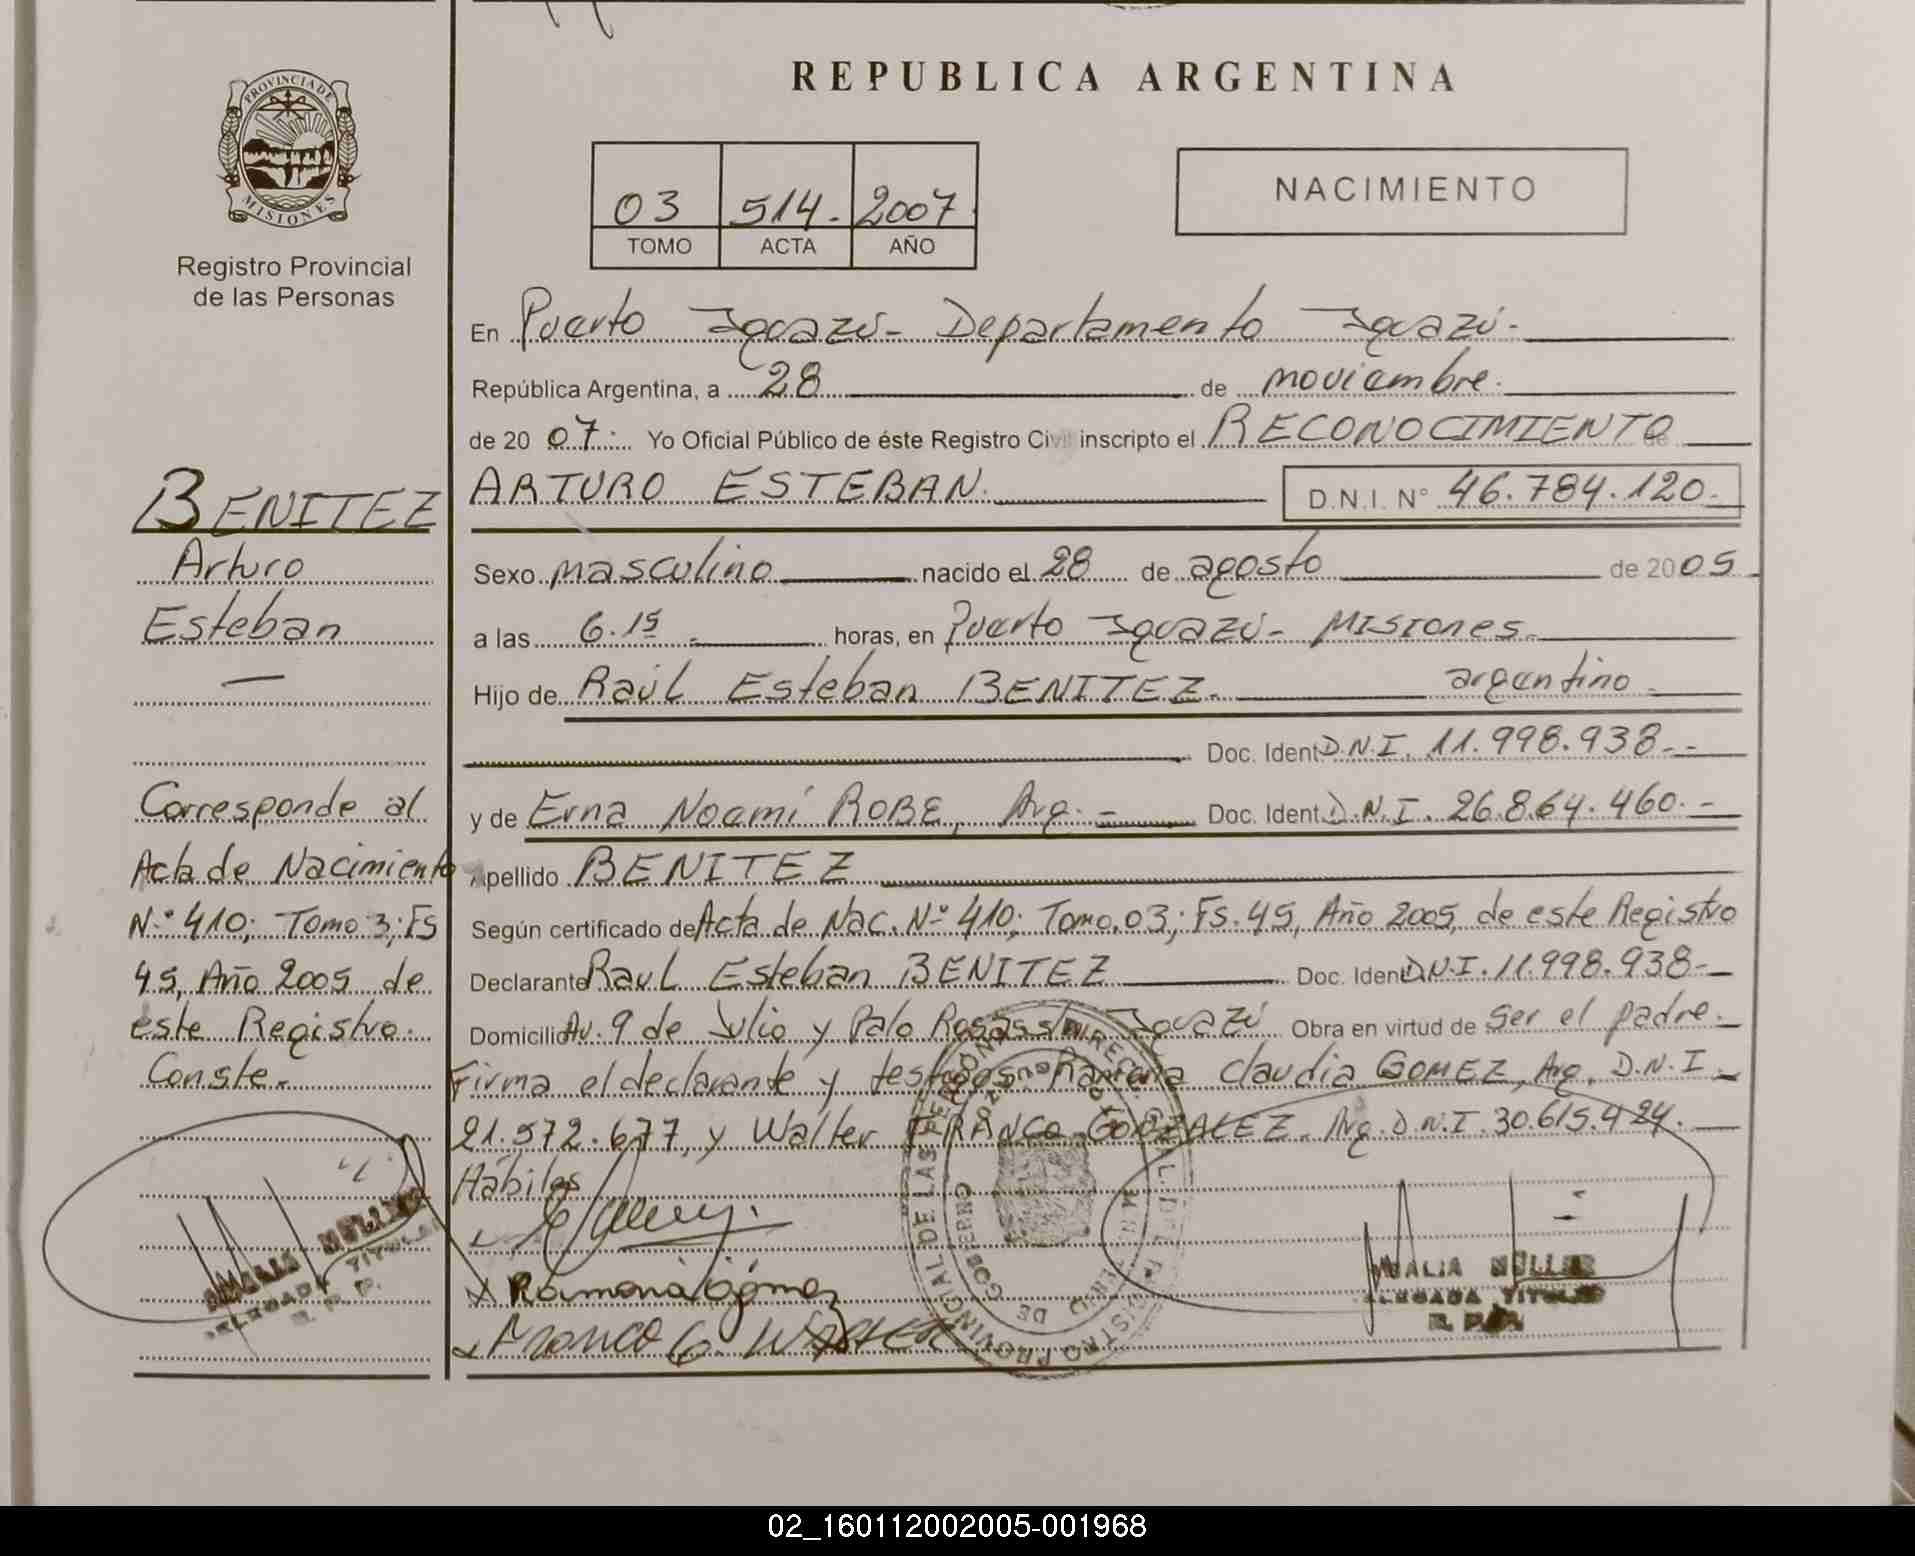 REPUBLICA ARGENTINA
PROVINCIA DE MISIONES
Registro Provincial
de las Personas
03 514. 2007.
TOMO ACTA AÑO
NACIMIENTO
En Puerto Iguazú- Departamento Iguazú.
República Argentina, a 28 de noviembre.
de 2007. Yo Oficial Público de éste Registro Civil inscripto el RECONOCIMIENTO de
ARTURO ESTEBAN. D.N.I. N° 46.784.120.
Sexo masculino nacido el 28 de agosto de 2005
a las 6.15 horas, en Puerto Iguazú- Misiones.
Hijo de Raúl Esteban BENITEZ. argentino.
Doc. Ident D.N.I. 11.998.938.-
y de Erna Noemí ROBE, Arg. - Doc. Ident. D.N.I. 26.864.460.-
Apellido BENITEZ
Según certificado de Acta de Nac. N° 410; Tomo.03; FS. 45, Año 2005, de este Registro
Declarante Raul Esteban BENITEZ Doc. Ident D.N.I. 11.998.938-
Domicilio Av. 9 de Julio y Palo Rosa s/n Iguazú Obra en virtud de Ser el padre.
Firma el declarante y testigos Ramona Claudia GOMEZ, Arg. D.N.I.
21.572.677, y Walter FRANCO GONZALEZ. Arg. D.N.I. 30.615.424.
Hábiles
BENITEZ
Arturo
Esteban
Corresponde al
Acta de Nacimiento
N° 410; Tomo 3; FS
45, Año 2005 de
este Registro.
Conste.
Ramona Gómez
Franco G. Walter
AMALIA MÜLLER
DELEGADA TITULAR
R. P. P.
AMALIA MÜLLER
DELEGADA TITULAR
R. P. P.
02_160112002005-001968